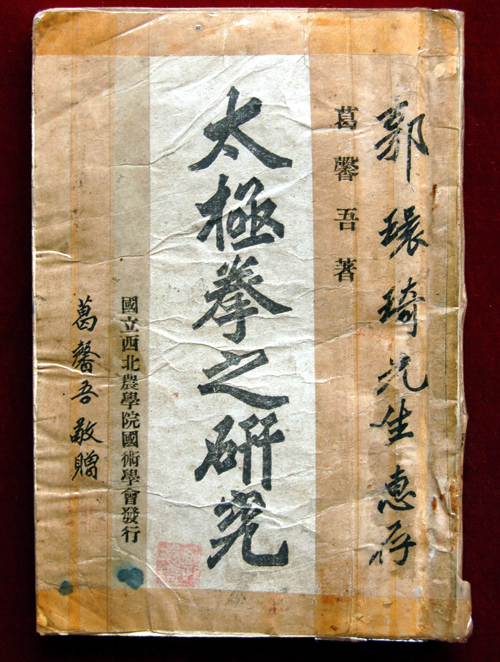 郭環琦先生惠存
葛馨吾著
太極拳之研究
國立西北農學院國術學會發行
葛馨吾敬贈